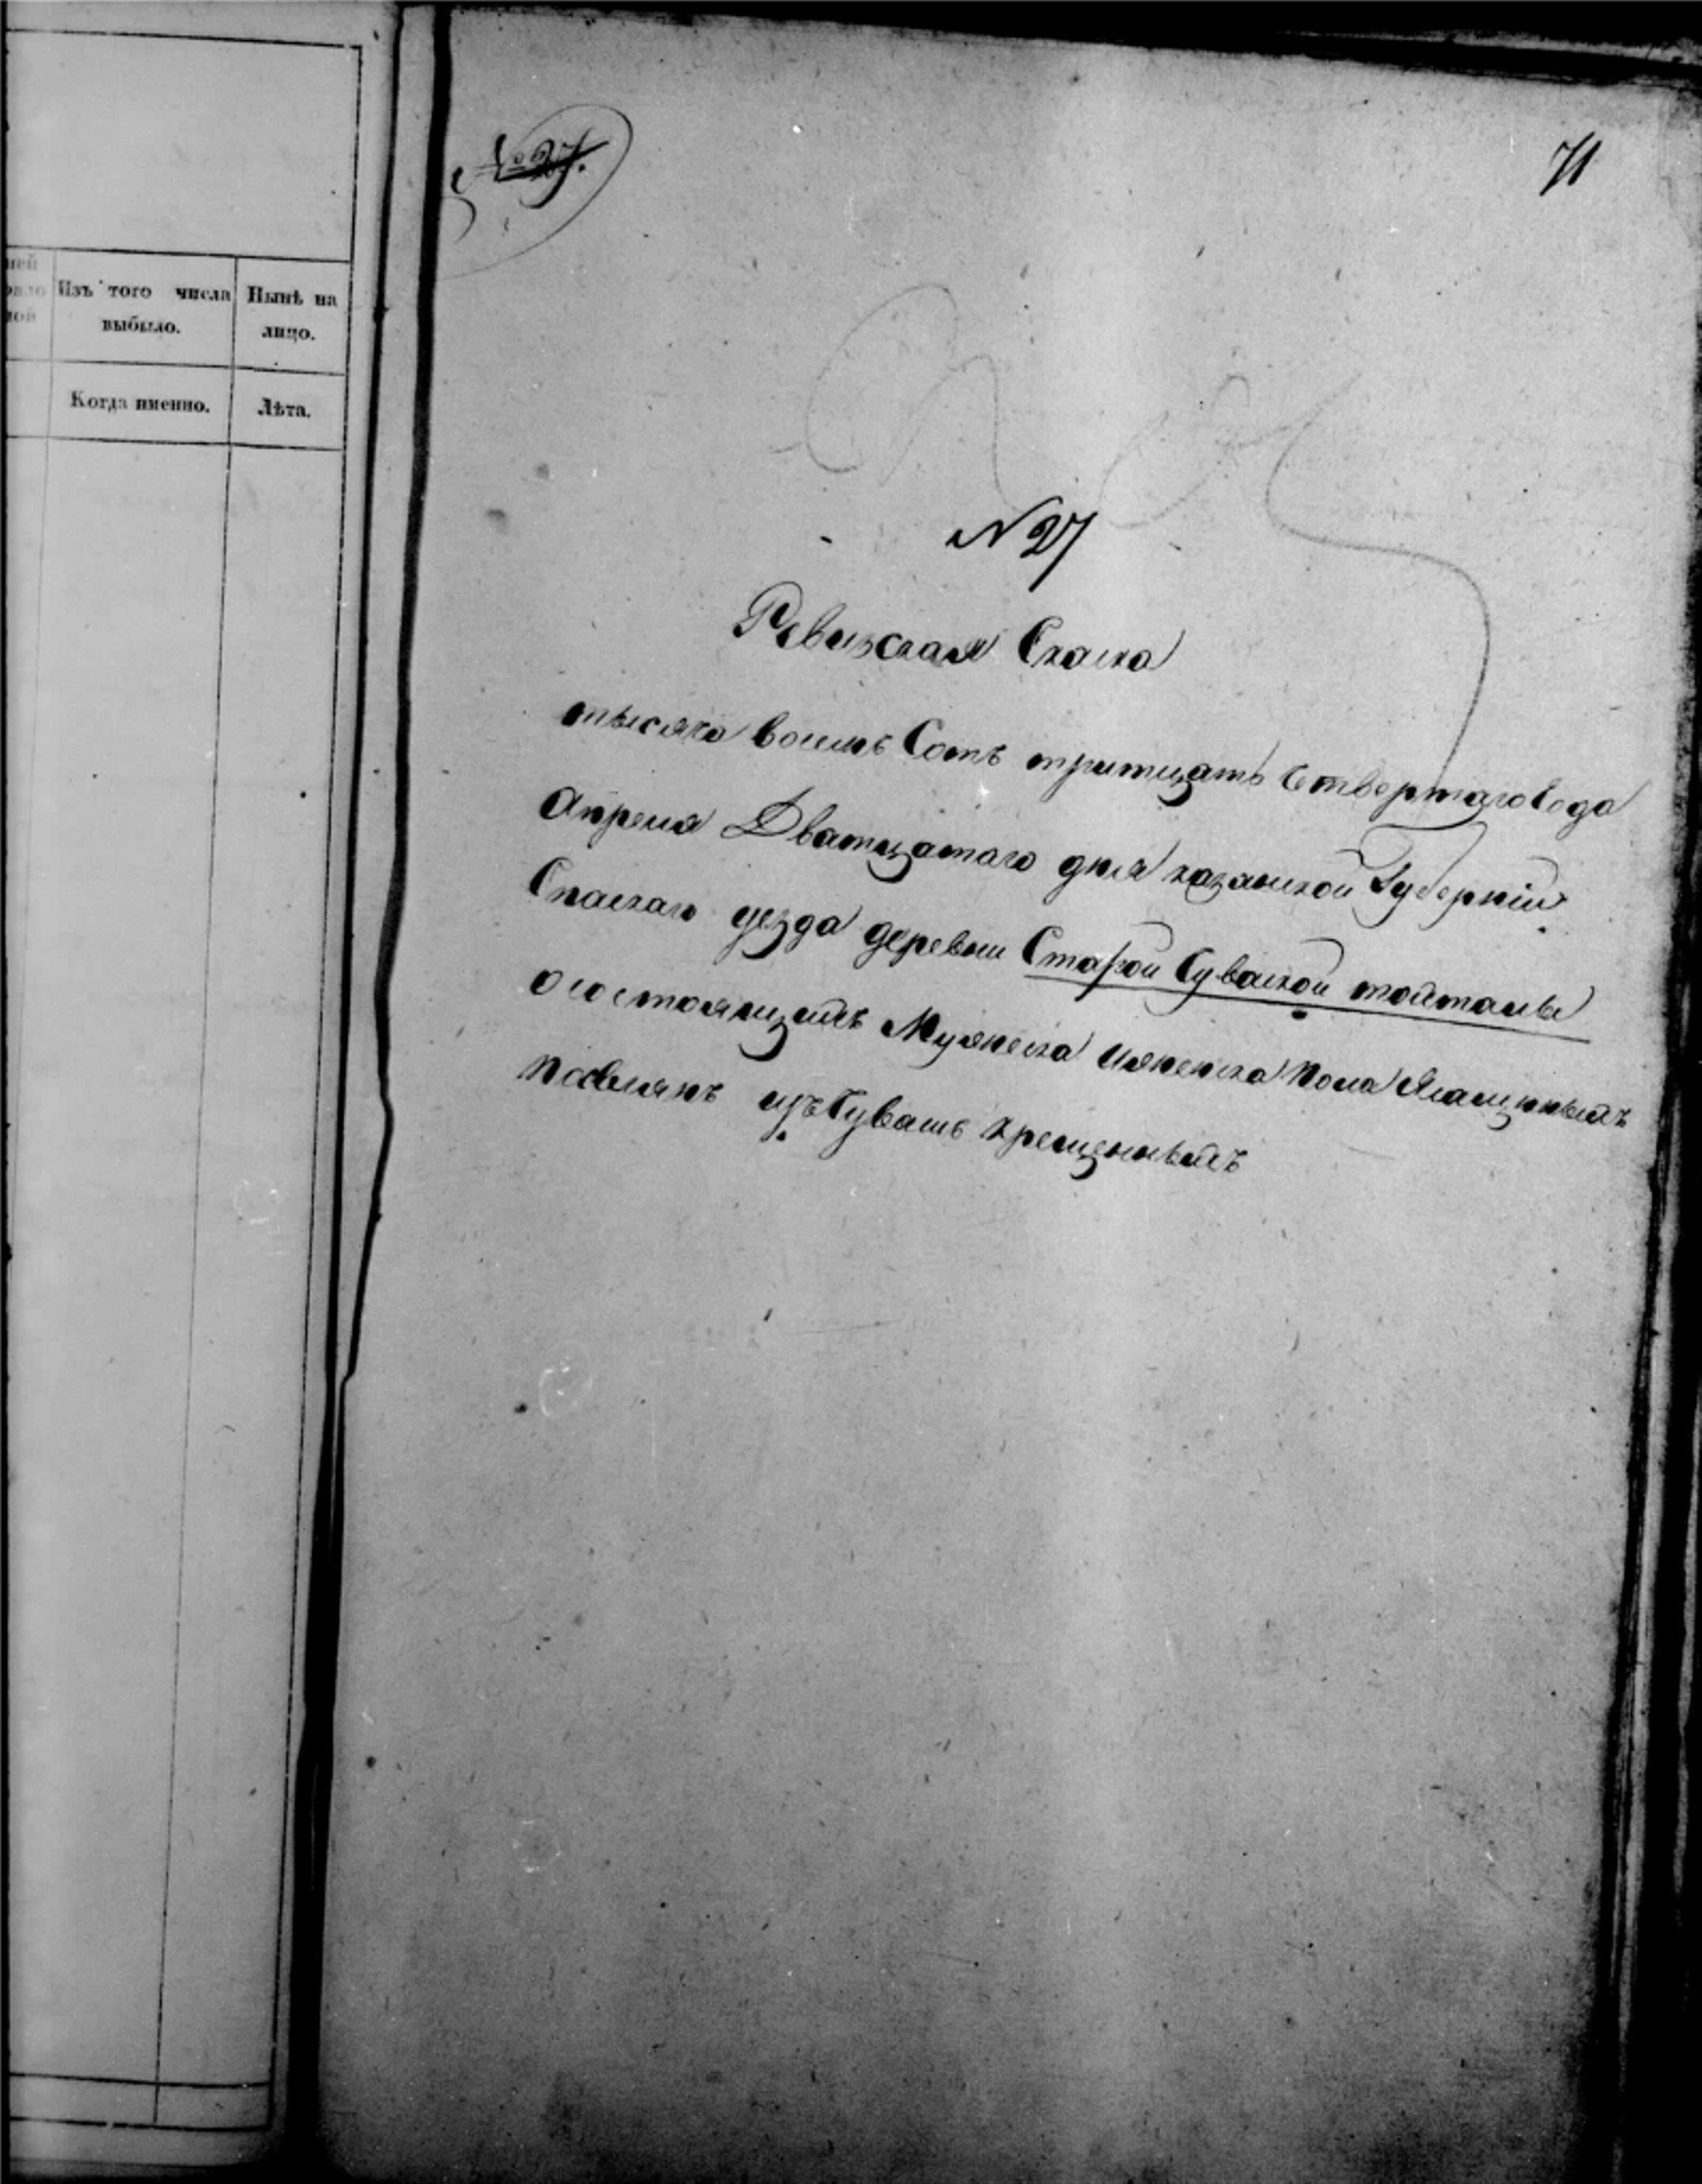 Изъ того числа выбыло.
Нынѣ на лицо.
Когда именно.
Лѣта.
№ 27.
71
N 27
Ревизская Скаска
тысяча восемь Сотъ тритцать четвертаго года
Апреля Дватцатаго дня казанской Губерніи
Спаскаго уезда деревни Старой Чуваской майтаны
о состоящихъ Мужеска и женска пола Ясашныхъ
изъ Чувашъ крещенныхъ